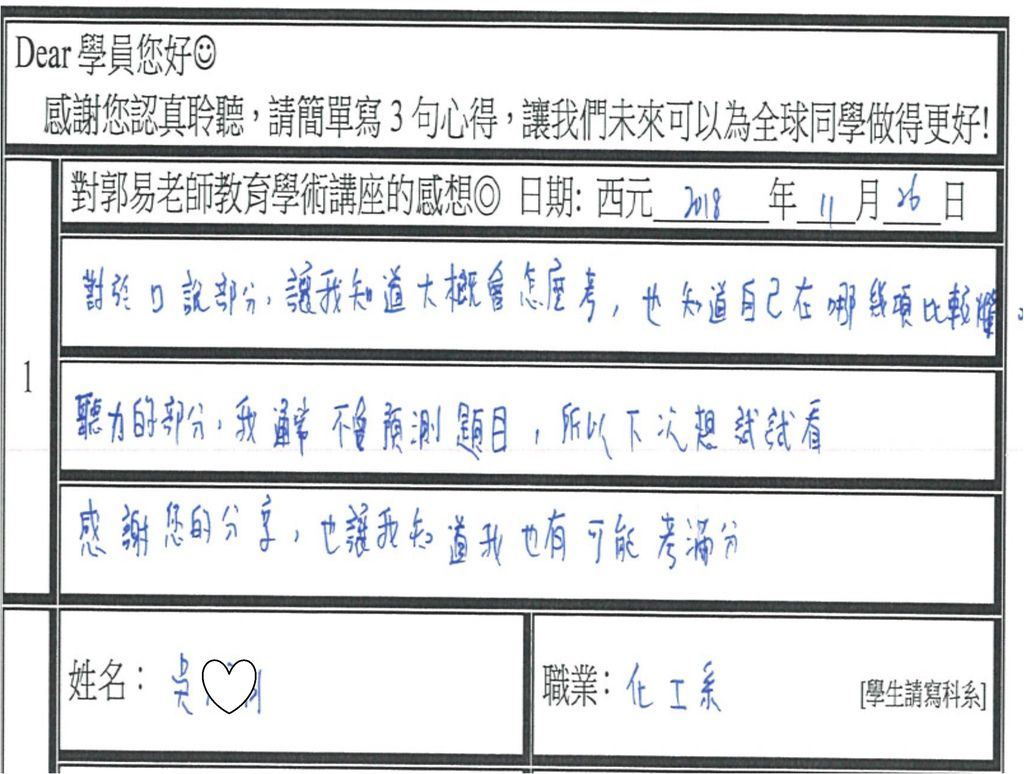 Dear 學員您好☺
感謝您認真聆聽，請簡單寫 3 句心得，讓我們未來可以為全球同學做得更好!
1
對郭易老師教育學術講座的感想◎ 日期: 西元 2018 年 11 月 26 日
對於口說部分，讓我知道大概會怎麼考，也知道自己在哪幾項比較爛。
聽力的部分，我通常不會預測題目，所以下次想試試看
感謝您的分享，也讓我知道我也有可能考滿分
姓名： 吳
職業： 化工系 [學生請寫科系]